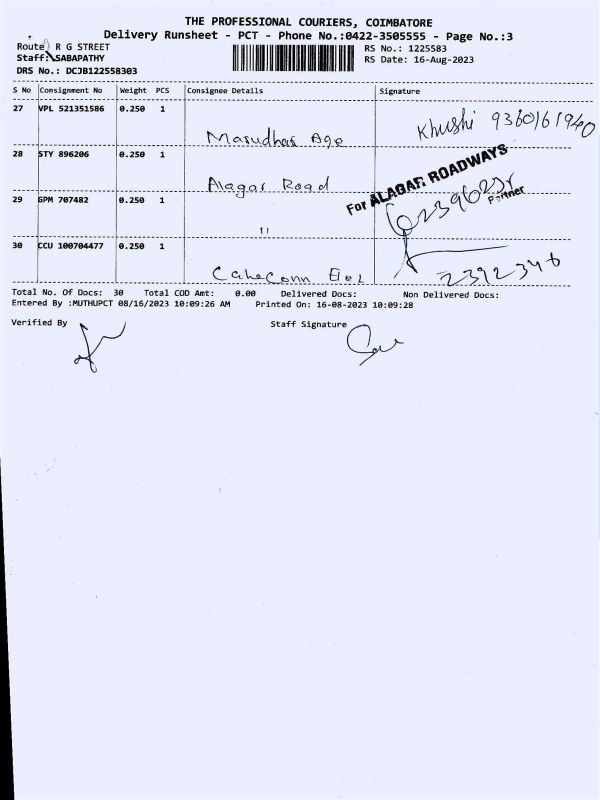 THE PROFESSIONAL COURIERS, COIMBATORE
Delivery Runsheet - PCT - Phone No.:0422-3505555 - Page No.:3
Route: R G STREET
RS No.: 1225583
Staff: SABAPATHY
RS Date: 16-Aug-2023
DRS No.: DCJB122558303
S No Consignment No Weight PCS Consignee Details Signature
27 VPL 521351586 0.250 1
Khushi 9360161940
Marudhar Age
28 STY 896206 0.250 1
Alagar Road
For ALAGAR ROADWAYS
Partner
29 GPM 707482 0.250 1
"
30 CCU 100704477 0.250 1
2392346
Total No. Of Docs: 30 Total COD Amt: 0.00 Delivered Docs: Non Delivered Docs:
Entered By :MUTHUPCT 08/16/2023 10:09:26 AM Printed On: 16-08-2023 10:09:28
Verified By Staff Signature